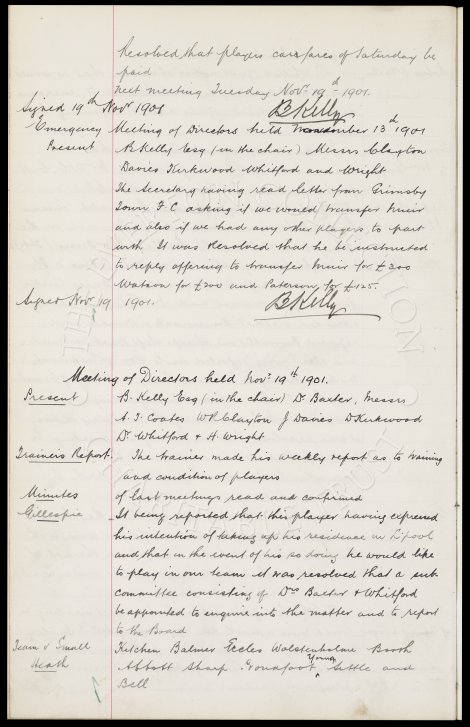 Resolved that players carsfares of Saturday be
paid
Next meeting Tuesday Novr 19th 1901.
Signed 19th Novr 1901 B Kelly
Emergency Meeting of Directors held November 13th 1901
Present B. Kelly Esq (in the chair) Messrs Clayton
Davies Kirkwood Whitford and Wright
The Secretary having read letter from Grimsby
Town F C asking if we would transfer Muir
and also if we had any other players to part
with It was Resolved that he be instructed
to reply offering to transfer Muir for £300
Watson for £200 and Paterson for £125.
Signed Novr 19 1901. B Kelly
Meeting of Directors held Novr 19th 1901.
Present B. Kelly Esq (in the chair) Dr Baxter, Messrs
A. T. Coates W R Clayton J Davies D Kirkwood
Dr Whitford & H. Wright
Trainers Report The trainer made his weekly report as to training
and condition of players
Minutes of last meetings read and confirmed
Gillespie It being reported that this player having expressed
his intention of taking up his residence in L'pool
and that in the event of his so doing he would like
to play in our team it was resolved that a sub
committee consisting of Drs Baxter & Whitford
be appointed to enquire into the matter and to report
to the Board
Team v Small Kitchen Balmer Eccles Wolstenholme Booth
Heath Abbott Sharp Proudfoot Young Settle and
Bell